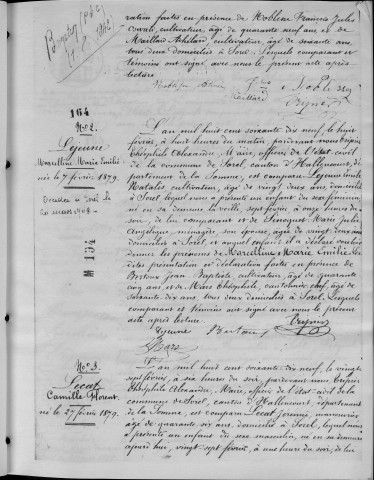 ration faites en présence de Noblesse François Jules
cultivateur, âgé de quarante neuf ans et de
Maillard cultivateur, âgé de soixante ans
tous deux domiciliés à Sorel. Lesquels comparant et
témoins ont signé avec nous le présent acte après
lecture.
104
No 2.
Lejeune
Marcelline Marie Emilie
née le 7 février 1879.
Décédée à Sorel le
20 mars 1948
L'an mil huit cent soixante dix neuf le huit
février, à huit heures du matin, pardevant nous Crépin
Théophile Alexandre, Maire, officier de l'état civil
de la commune de Sorel, canton d'Hallencourt, dé-
partement de la Somme, est comparu Lejeune Emile
Natalis, cultivateur, âgé de vingt deux ans, domicilié
à Sorel lequel nous a présenté un enfant du sexe féminin
né en sa demeure la veille, sept février, à onze heures du
matin, de lui comparant et de Marie Julie
Angélique, ménagère, son épouse, âgée de vingt deux ans
domiciliée à Sorel, et auquel enfant il a déclaré vouloir
donner les prénoms de Marcelline Marie Emilie. Les
dites présentation et déclaration faites en présence de
Bertoux Jean Baptiste, cultivateur, âgé de quarante
cinq ans, et de Mars Théophile, cantonnier chef, âgé de
soixante dix ans, tous deux domiciliés à Sorel. Lesquels
comparant et témoins ont signé avec nous le présent
acte après lecture.
Lejeune Bertoux Crépin
Mars
M 104
No 3.
Lecat
Camille Florent
né le 27 février 1879.
L'an mil huit cent soixante dix neuf, le vingt
sept février, à six heures du soir, pardevant nous Crépin
Théophile Alexandre, Maire, officier de l'état civil de la
commune de Sorel, canton d'Hallencourt, département
de la Somme, est comparu Lecat manouvrier
âgé de quarante six ans, domicilié à Sorel, lequel nous
a présenté un enfant du sexe masculin, né en sa demeure
aujourd'hui, vingt sept février, à une heure du soir, de lui